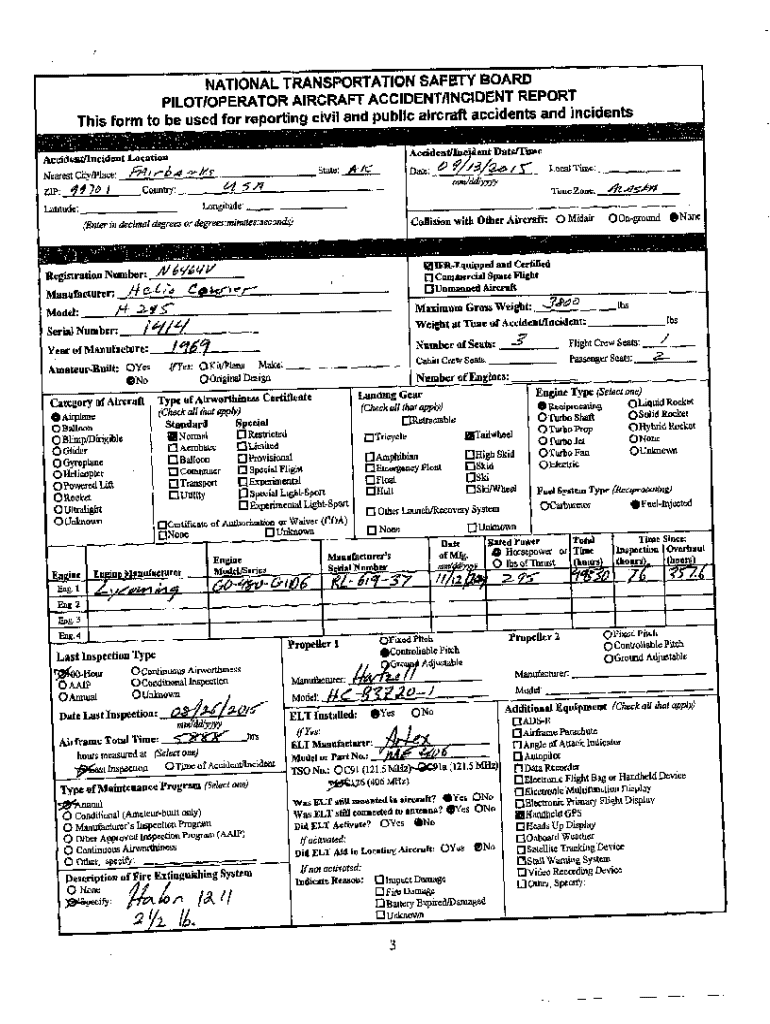 NATIONAL TRANSPORTATION SAFETY BOARD
PILOT/OPERATOR AIRCRAFT ACCIDENT/INCIDENT REPORT
This form to be used for reporting civil and public aircraft accidents and incidents
Accident/Incident Location
Nearest City/Place: FAirbanks State: AK
ZIP: 99701 Country: USA
Latitude: Longitude:
(Enter in decimal degrees or degrees:minutes:seconds)
Accident/Incident Date/Time
Date: 09/13/2015 Local Time:
mm/dd/yyyy
Time Zone: ALASKA
Collision with Other Aircraft: Midair On-ground None
Registration Number: N6464V
Manufacturer: Helio Courier
Model: H 295
Serial Number: 1414
Year of Manufacture: 1969
Amateur-Built: Yes If Yes: Kit/Plans Make:
No Original Design
IFR-Equipped and Certified
Commercial Space Flight
Unmanned Aircraft
Maximum Gross Weight: 3800 lbs
Weight at Time of Accident/Incident: lbs
Number of Seats: 3 Flight Crew Seats: 1
Cabin Crew Seats: Passenger Seats: 2
Number of Engines:
Category of Aircraft
Airplane
Balloon
Blimp/Dirigible
Glider
Gyroplane
Helicopter
Powered Lift
Rocket
Ultralight
Unknown
Type of Airworthiness Certificate
(Check all that apply)
Standard Special
Normal Restricted
Aerobatic Limited
Balloon Provisional
Commuter Special Flight
Transport Experimental
Utility Special Light-Sport
Experimental Light-Sport
Certificate of Authorization or Waiver (COA)
None Unknown
Landing Gear
(Check all that apply)
Retractable
Tricycle Tailwheel
Amphibian High Skid
Emergency Float Skid
Float Ski
Hull Ski/Wheel
Other Launch/Recovery System
None Unknown
Engine Type (Select one)
Reciprocating Liquid Rocket
Turbo Shaft Solid Rocket
Turbo Prop Hybrid Rocket
Turbo Jet None
Turbo Fan Unknown
Electric
Fuel System Type (Reciprocating)
Carburetor Fuel-Injected
Engine Engine Manufacturer Engine Model/Series Manufacturer's Serial Number Date of Mfg. mm/dd/yyyy Rated Power Horsepower or lbs of Thrust Total Time (hours) Time Since: Inspection (hours) Overhaul (hours)
Eng. 1 Lycoming GO-480-G1D6 RL-619-37 295 76 357.6
Eng. 2
Eng. 3
Eng. 4
Last Inspection Type
100-Hour Continuous Airworthiness
AAIP Conditional Inspection
Annual Unknown
Date Last Inspection: 08/26/2015
mm/dd/yyyy
Airframe Total Time: 5888 hrs
hours measured at (Select one)
Last Inspection Time of Accident/Incident
Type of Maintenance Program (Select one)
Annual
Conditional (Amateur-built only)
Manufacturer's Inspection Program
Other Approved Inspection Program (AAIP)
Continuous Airworthiness
Other, specify:
Description of Fire Extinguishing System
None
Specify: Halon 1211
2 1/2 lb.
Propeller 1 Fixed Pitch
Controllable Pitch
Ground Adjustable
Manufacturer: Hartzell
Model: HC-B3Z20-1
Propeller 2 Fixed Pitch
Controllable Pitch
Ground Adjustable
Manufacturer:
Model:
ELT Installed: Yes No
If Yes:
ELT Manufacturer: Artex
Model or Part No.: 406
TSO No.: C91 (121.5 MHz) C91a (121.5 MHz)
C126 (406 MHz)
Was ELT still mounted in aircraft? Yes No
Was ELT still connected to antenna? Yes No
Did ELT Activate? Yes No
If activated:
Did ELT Aid in Locating Aircraft: Yes No
If not activated:
Indicate Reason: Impact Damage
Fire Damage
Battery Expired/Damaged
Unknown
Additional Equipment (Check all that apply)
ADS-B
Airframe Parachute
Angle of Attack Indicator
Autopilot
Data Recorder
Electronic Flight Bag or Handheld Device
Electronic Multifunction Display
Electronic Primary Flight Display
Handheld GPS
Heads Up Display
Onboard Weather
Satellite Tracking Device
Stall Warning System
Video Recording Device
Other, Specify:
3